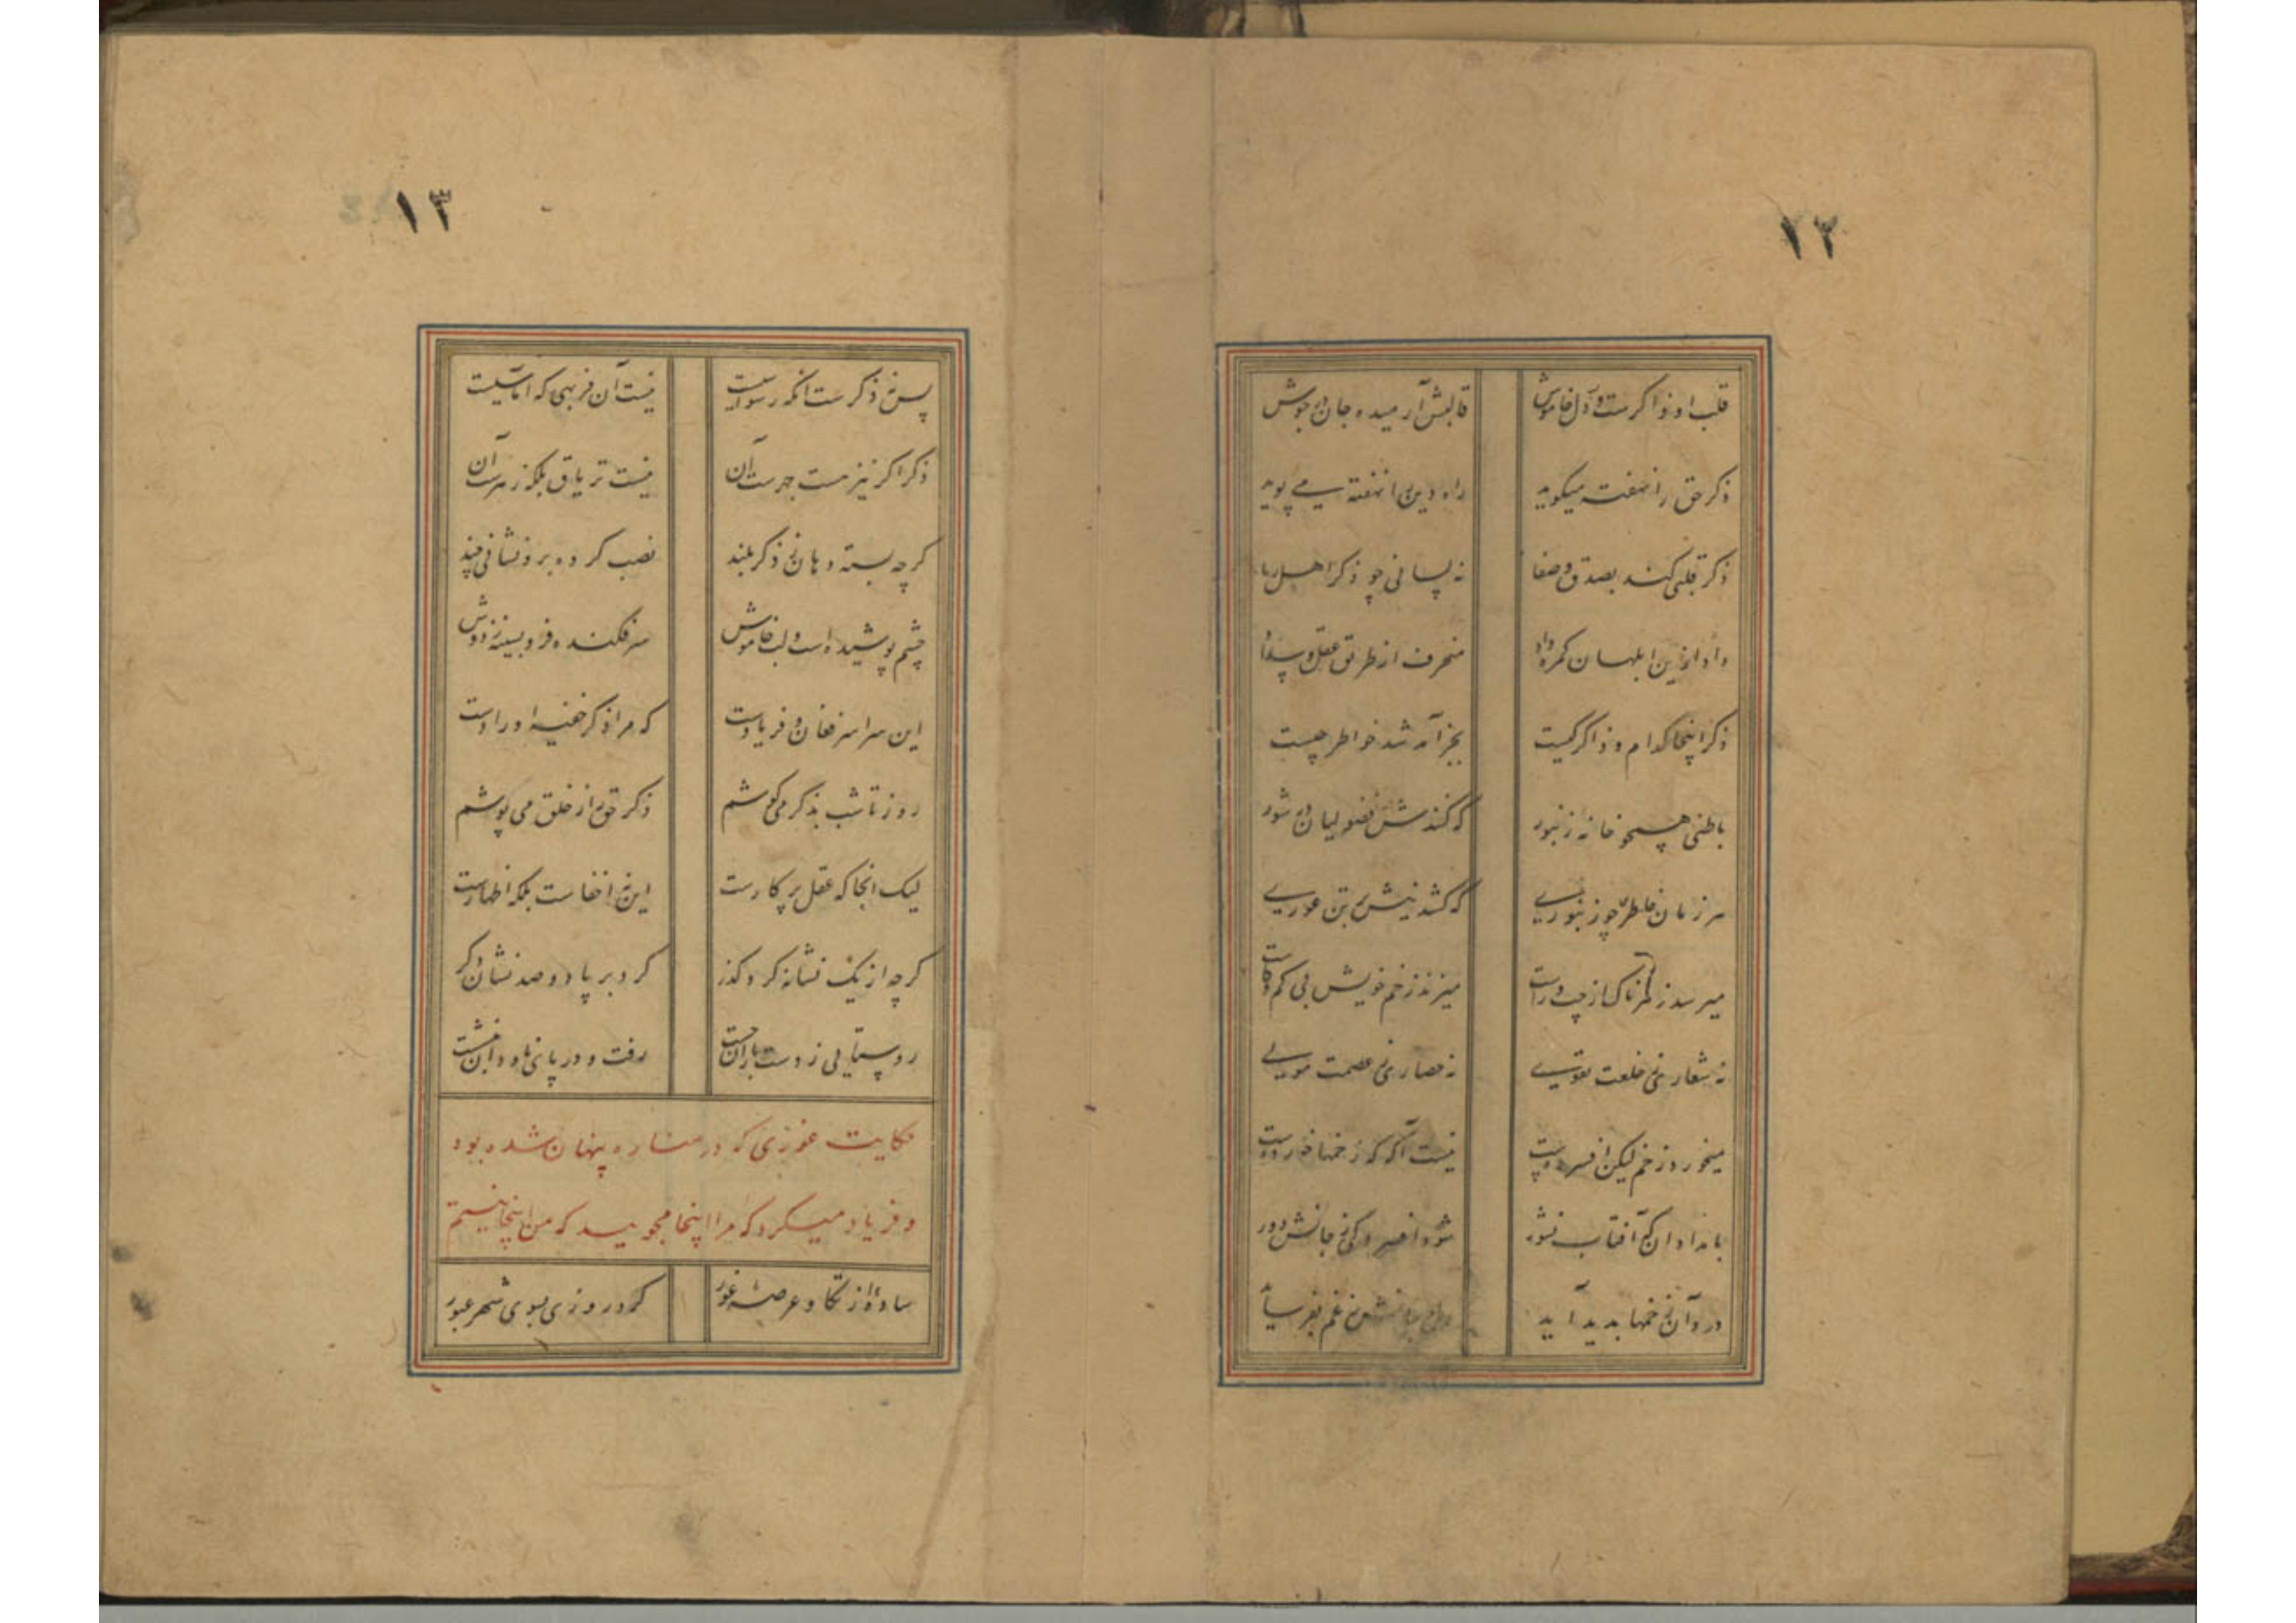 ۱۲
قلب او ذاکرست و دل خاموش قالبش آرمیده جان در جوش
ذکر حق را نهفته میکوید راه دین را نهفته می پوید
ذکر قلبی کند بصدق و صفا نه لسانی چو ذکر اهل ریا
داد ازین ابلهان کمره داد منحرف از طریق عقل و سداد
ذکر اینجا کدام و ذاکر کیست بجز آمد شد خواطر چیست
باطنی همچو خانه زنبور که کنندش فضولیان در شور
هر زمان خاطری چو زنبوری که کشد نیش بر تن عوری
میرسد زهرناک از چپ و راست میزند زخم خویش بی کم و کاست
نه شعاری ز خلعت تقوی نه حصاری ز عصمت مولی
میخورد زخم لیکن افسرده‌ست نیست آگه که زخمها خورده‌ست
بامدادان که آفتاب نشور شود افسردکی ز جانش دور
درد آن زخمها بدید آید
۱۳
پس نه ذکرست آنکه رسواییست نیست آن فربهی که آماسیست
ذکر اکر نیز هست جهرست آن نیست تریاق بلکه زهرست آن
کرچه بسته دهان ز ذکر بلند نصب کرده برو نشانی چند
چشم پوشیده است و لب خاموش سر فکنده فرو بسینه ز دوش
این سراسر فغان و فریادست که مرا ذکر خفیه اورادست
روز تا شب بذکر می کوشم ذکر حق از خلق می پوشم
لیک آنجا که عقل بر کارست این نه اخفاست بلکه اظهارست
کرچه از یک نشانه کرد کذر کرد بر پا دو صد نشان دکر
روستایی ز دست باران جست رفت و در پای ناودان بنشست
حکایت غوری که در مناره پنهان شده بود
و فریاد میکرد که مرا اینجا مجویید که من اینجا نیستم
ساده‌ از تکاو عرصه غور کرد روزی بسوی شهر عبور